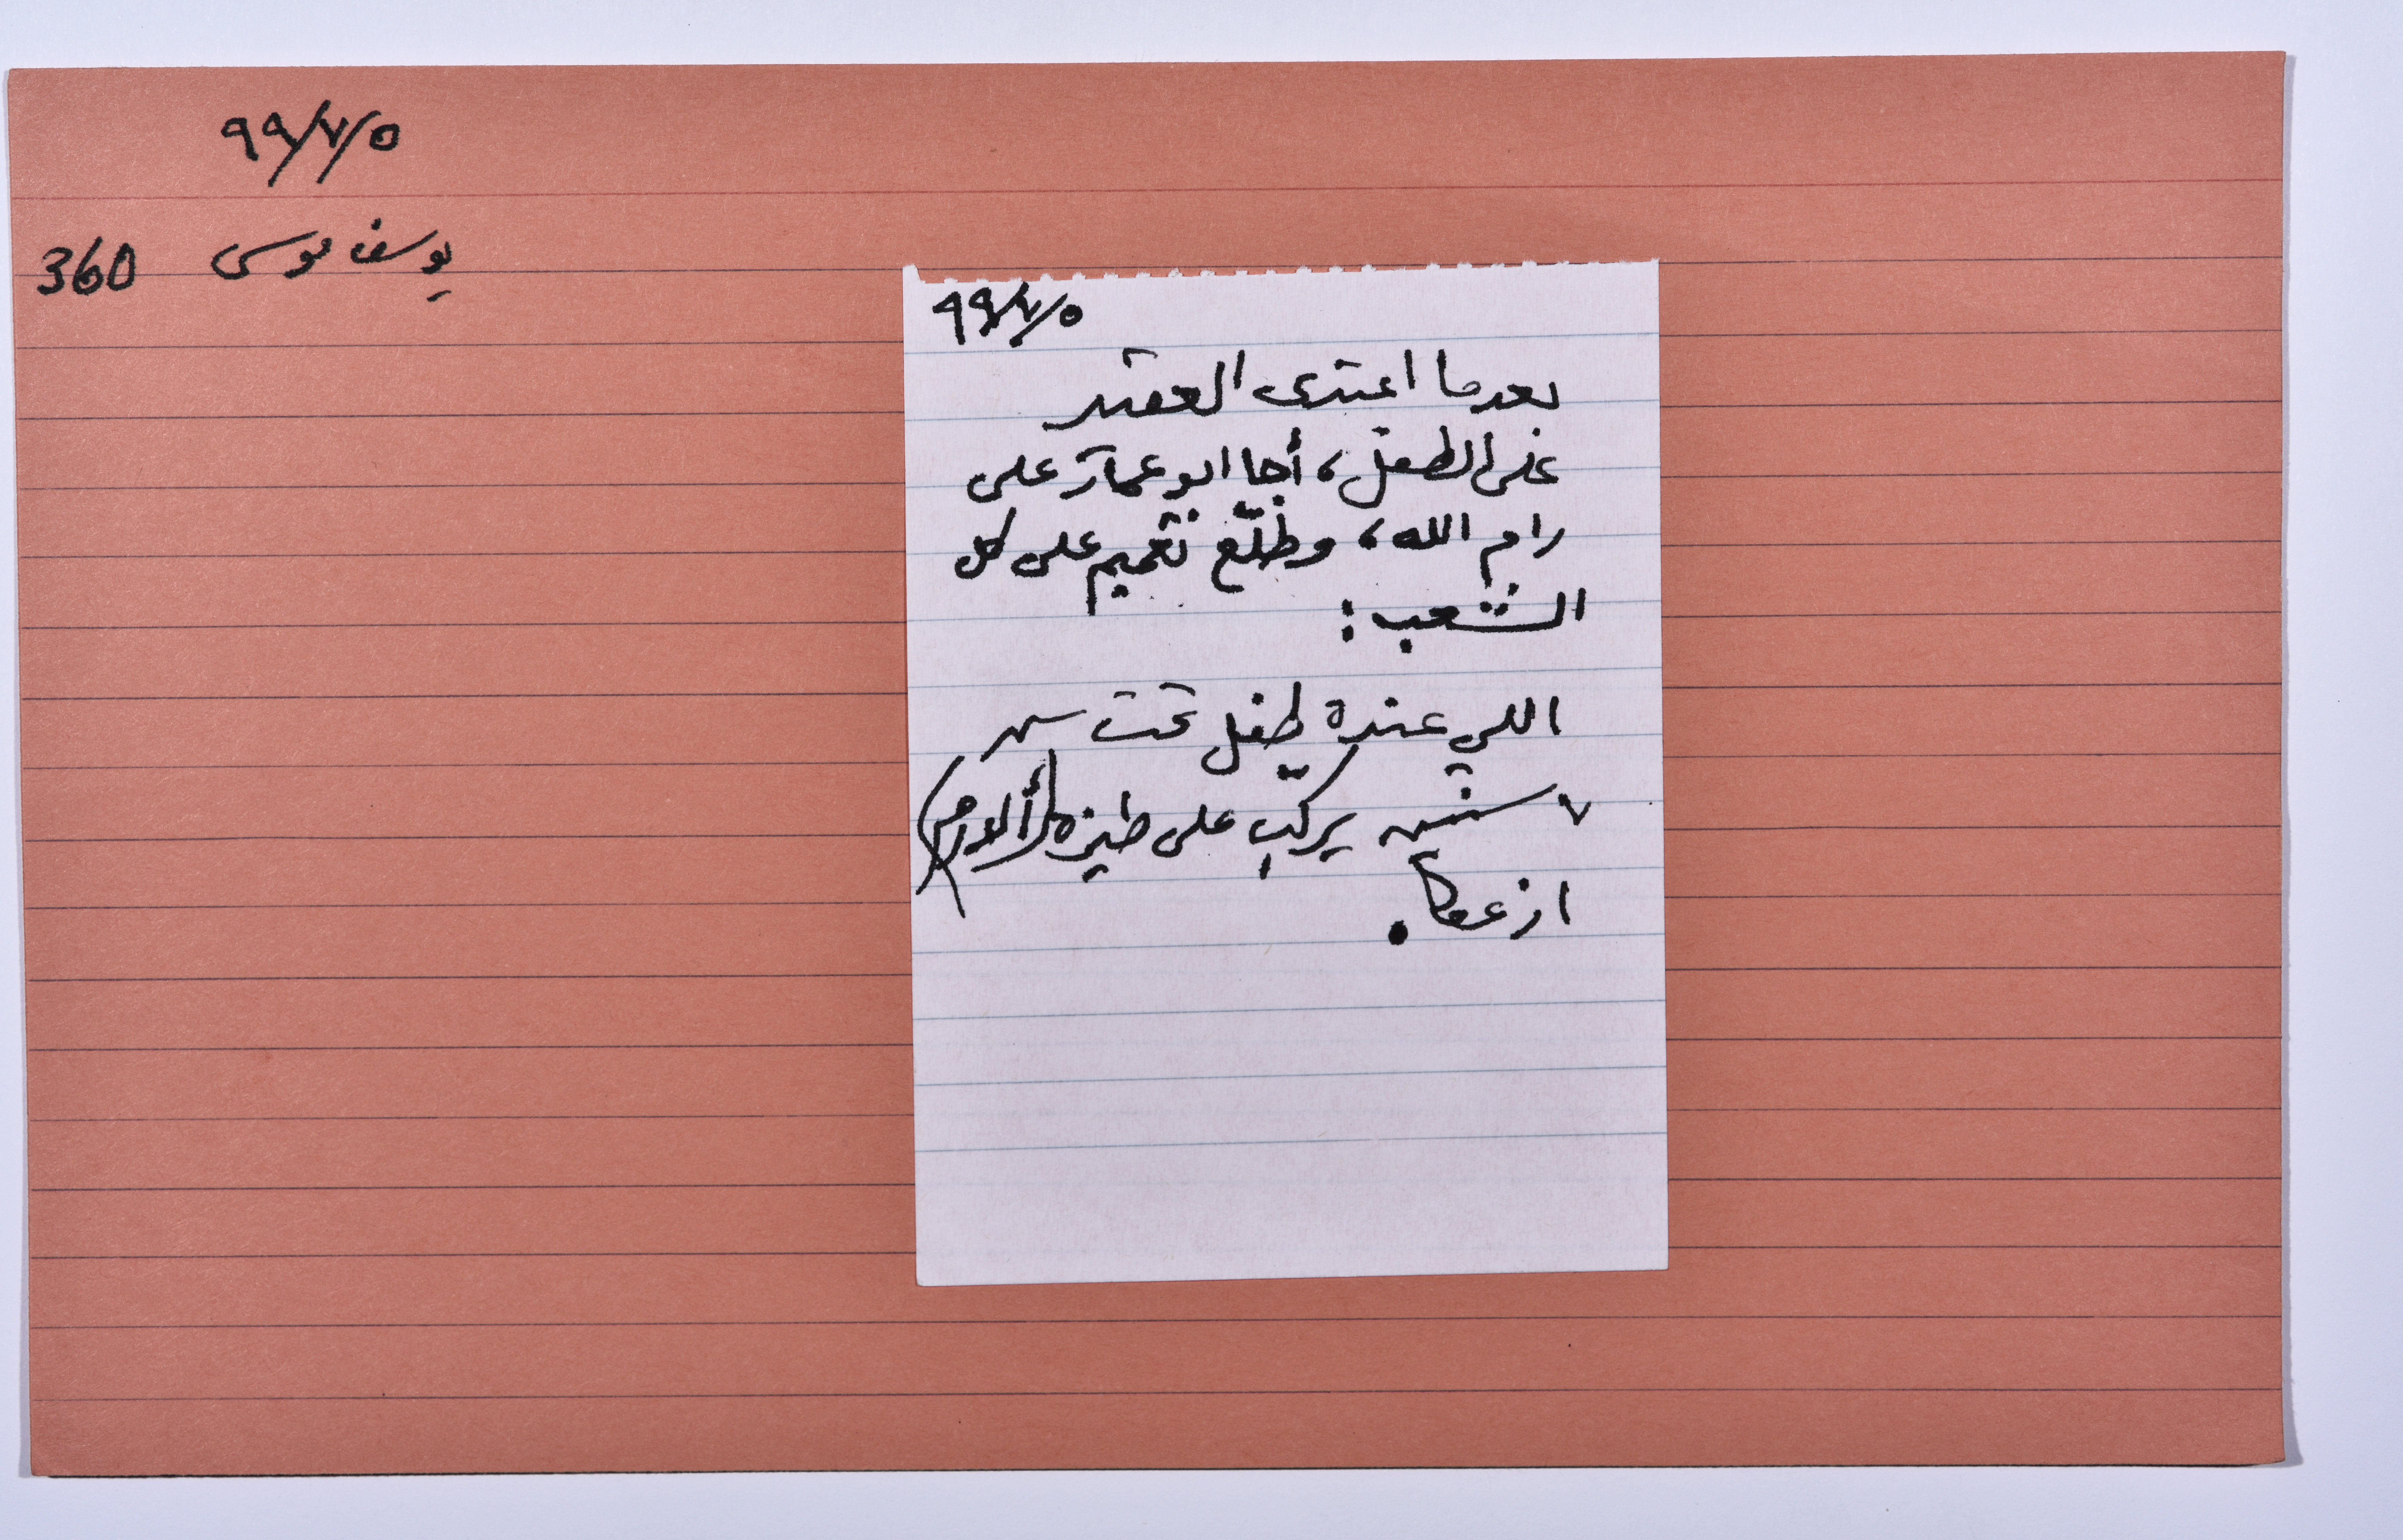 ٩٩/٧/٥
يوسف موسى 360
٩٩/٧/٥
بعدما اعتدى العقيد
على الطفل، أجا ابو عمار على
رام الله، وطلّع تعميم على كل
الشعب:
اللي عنده طفل تحت سن
٧ سنين يركّب على طيزه (ألورم)